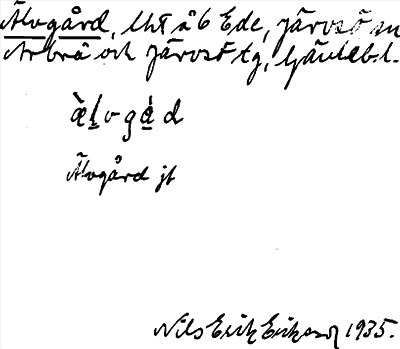 Älvgård, lht å 6 Ede, Järvsö sn
Arbrå och Järvsö tg, Gävlebl.
æ̀l̠vgá̠d
Älvgård jb
Nils Erik Eriksson 1935.